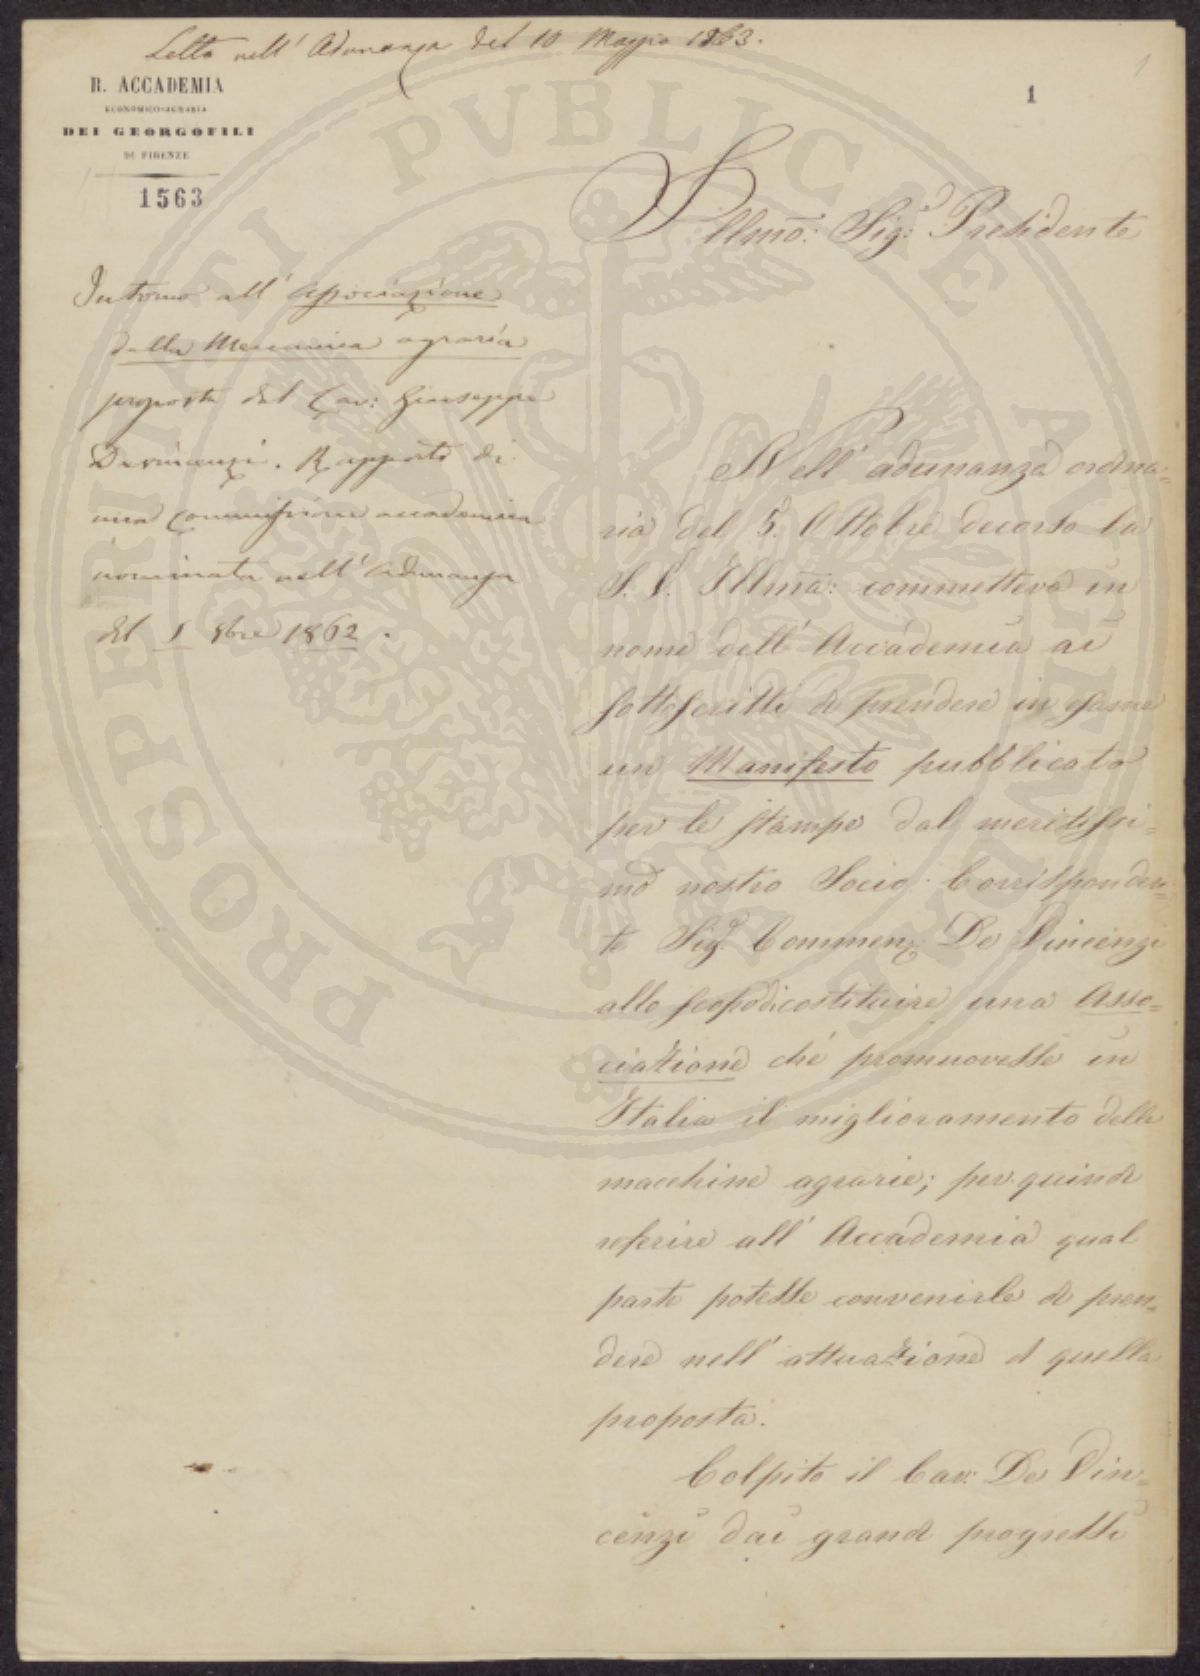 Letto nell' Adunanza del 10 Maggio 1863.
R. ACCADEMIA
ECONOMICO-AGRARIA
DEI GEORGOFILI
DI FIRENZE
1563
1
1
Intorno all' Associazione
della Meccanica agraria
proposta dal Cav: Giuseppe
Devincenzi. Rapporto di
una Commissione accademica
nominata nell' Adunanza
del 5 8bre 1862.
Illmo: Sig.r Presidente
Nell' adunanza ordina=
ria del 5. Ottobre decorso la
S. V. Illma: commetteva in
nome dell' Accademia ai
sottoscritti di prendere in esame
un Manifesto pubblicato
per le stampe dal meritissi=
mo nostro Socio Corrisponden=
te Sig. Commen. De Vincenzi
allo scopo di costituire una Asso=
ciazione che promuovesse in
Italia il miglioramento delle
macchine agrarie; per quindi
referire all' Accademia qual
parte potesse convenirle di pren=
dere nell' attuazione di quella
proposta.
Colpito il Cav: De Vin=
cenzi dai grandi progressi
PROSPERITATI PVBLICAE AVGENDAE